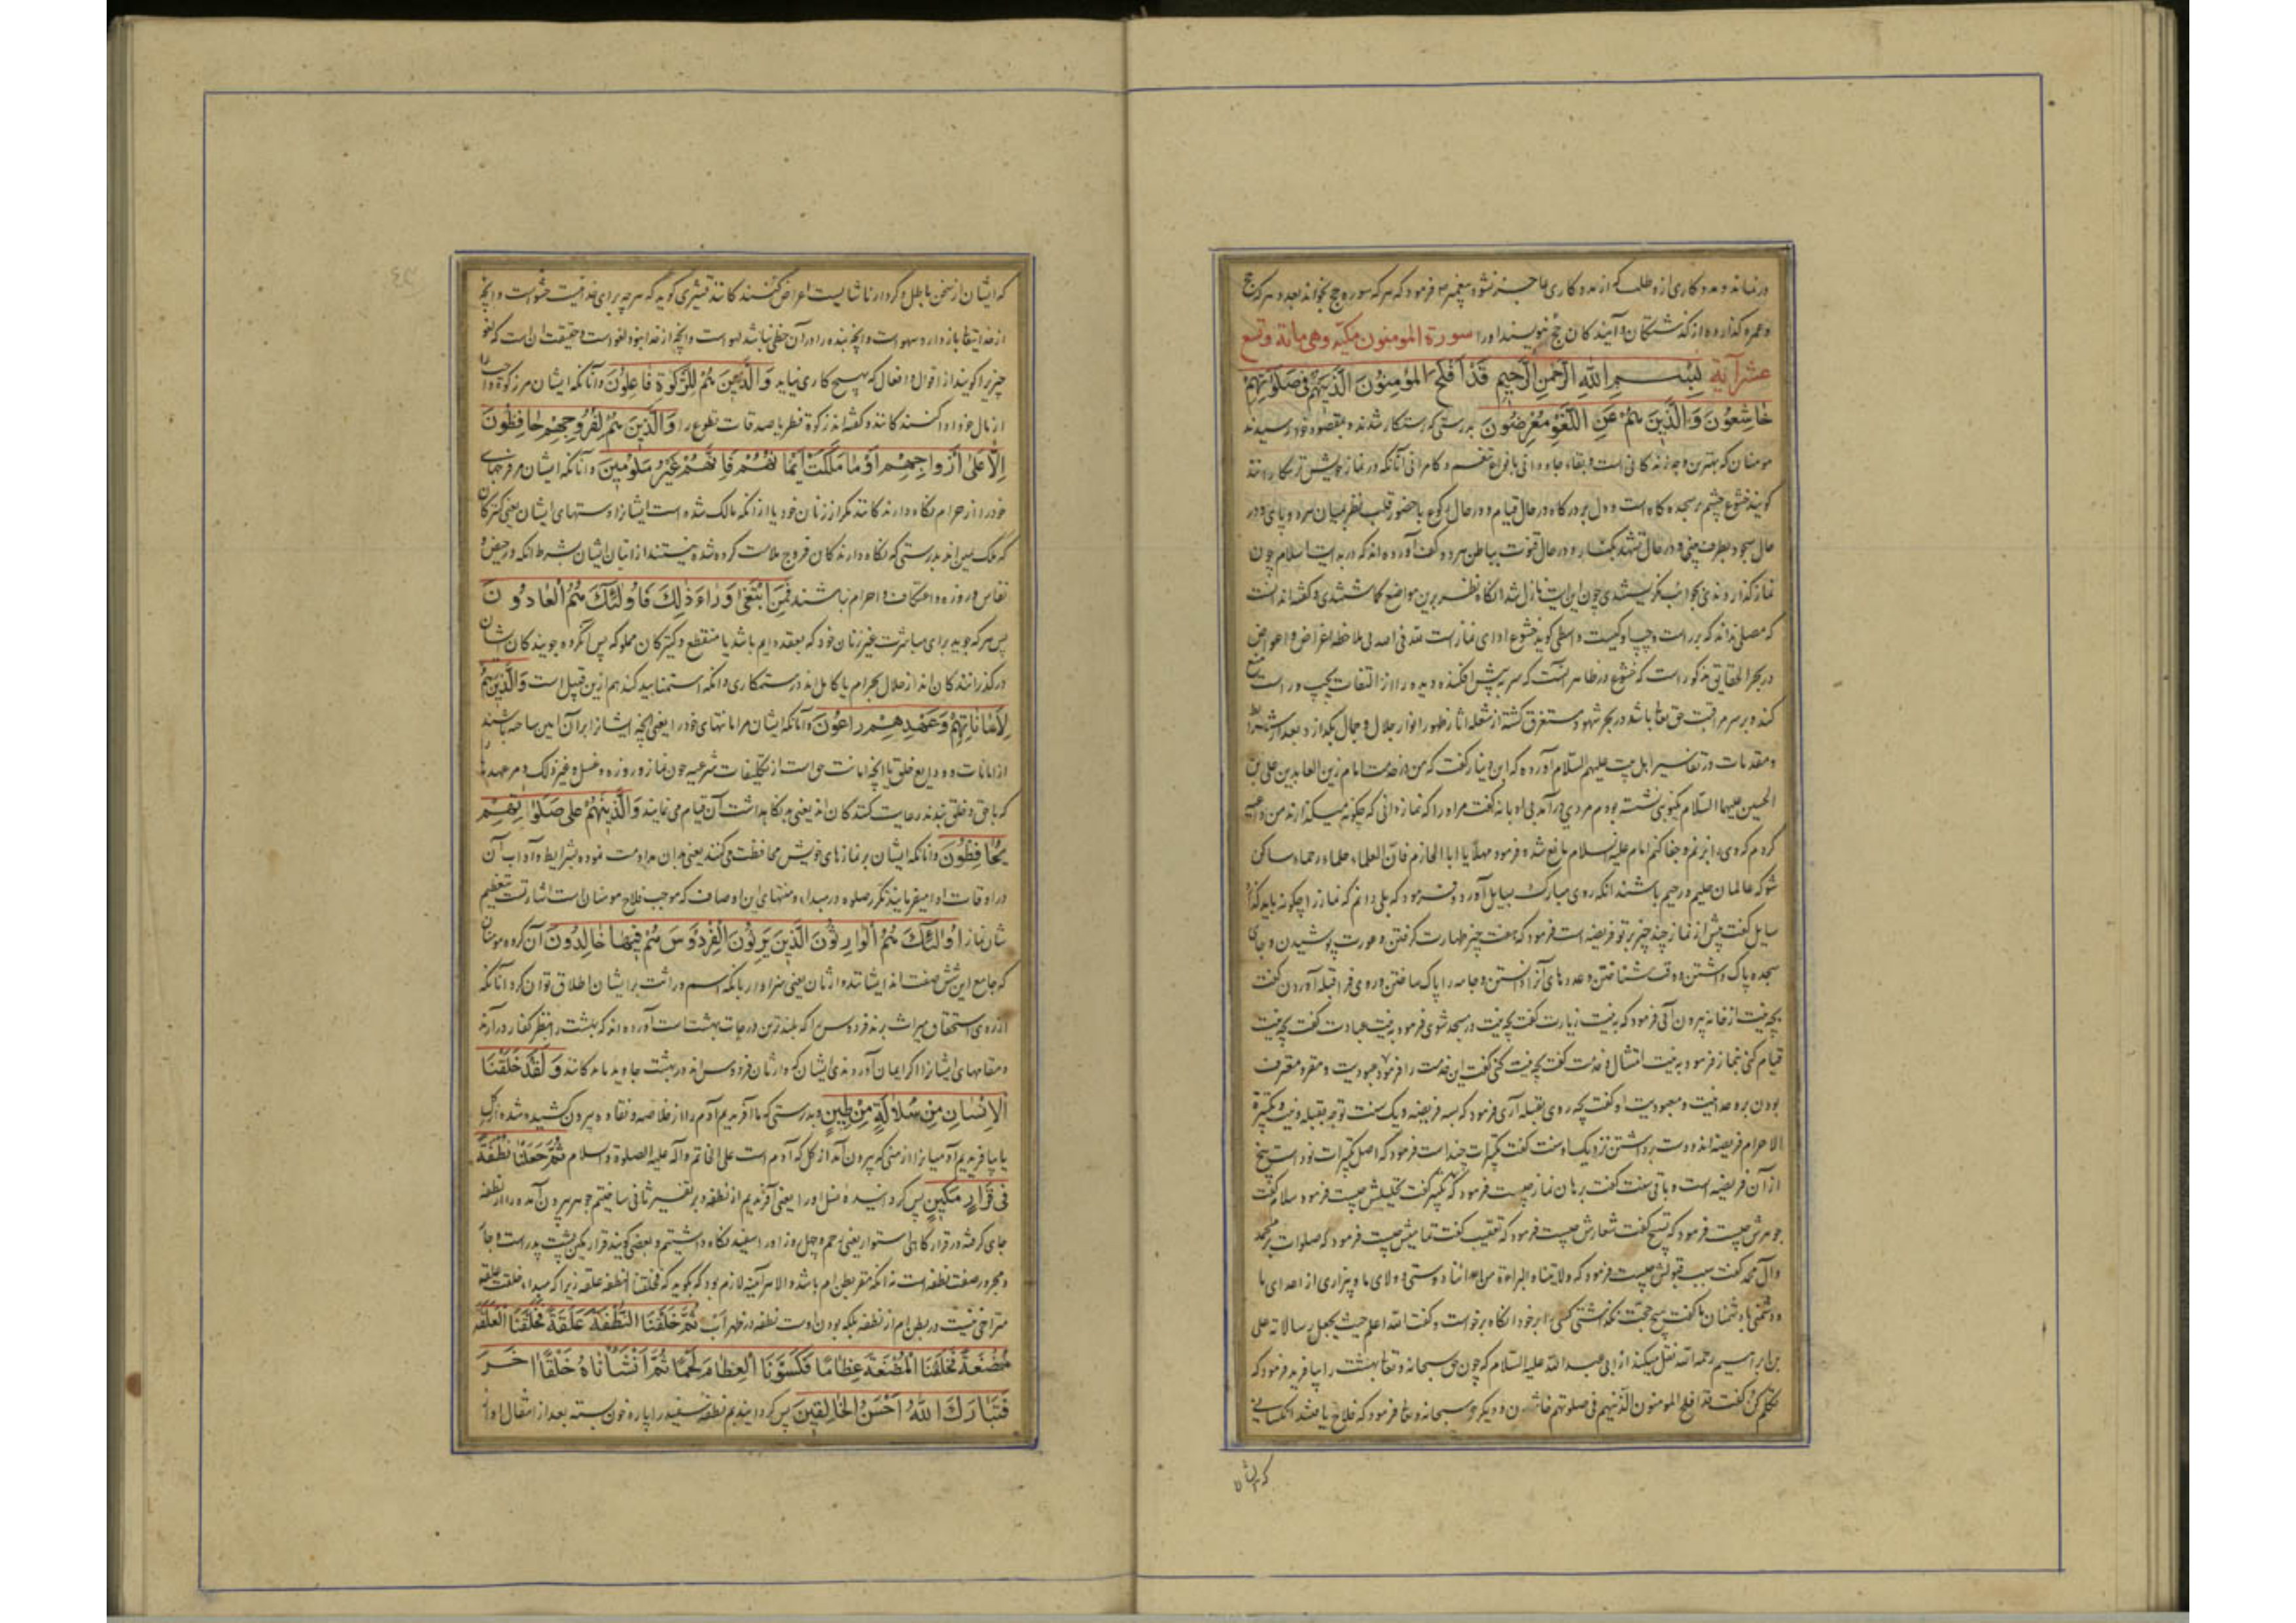 در نماند و مددکاری از و طلب که از مددکاری عاجز نشود پیغمبر فرمود که هر که سوره حج بخواند بعدد هر که حج
و عمره گذارده از گذشتگان و آیندکان حج نویسند او را سورة المومنون مکیه وهی مائة وتسع
عشر آیة بِسْمِ اللهِ الرَّحْمنِ الرَّحِیمِ قَدْ اَفْلَحَ الْمُؤْمِنُونَ الَّذِینَ هُمْ فِی صَلَوتِهِمْ
خَاشِعُونَ وَ الَّذِینَ هُمْ عَنِ اللَّغْوِ مُعْرِضُونَ بدرستی که رستکار شدند و بمقصود خود رسیدند
مومنان که بهترین و جاودانی آنانکه در نماز خویش ترسکارانند
کویند خشوع چشم بر سجده کاه است و دل بر درکاه در حال قیام و در حال رکوع با حضور قلب نظر بمیان هر دو پای و در
حال سجود بطرف بینی و در حال تشهد بکنار و در حال قنوت بباطن هر دو کف آورده اند که در بدایت اسلام چون
نماز کذاردندی چون این آیت نازل شد نظر برین مواضع کماشتندی و کفته اند آنست
که مصلی نداند که بر راست و چپ او کیست واسطی کوید خشوع ادای نماز است لله فی الله بی ملاحظه اغراض و اعواض
در بحر الحقایق مذکور است که خشوع در ظاهر آنست که سر در پیش افکنده دیده را از التفات بچپ و راست منع
کند و بر سر مراقبت حق تعالی باشد در بحر شهود مستغرق کشته از شعله آثار ظهور انوار جلال و جمال بکدازد بعد از شرایط
و مقدمات در تفاسیر اهل بیت علیهم السلام آورده که ابن دینار کفت که من در خدمت امام زین العابدین علی بن
الحسین علیهما السلام بودم مردی درآمد کفت مرا او را که نماز دانی که چکونه میکذارند من قصد
کردم که وی را برنم و جفا کنم امام علیه السلام مانع شده فرمود مهلا یا ابا الحازم فان العلماء حلماء رحماء ساکن
شو که عالمان حلیم و رحیم باشند آنکه روی مبارک بسایل آورد و فرمود که بلی دانم که نماز را چکونه باید کذارد
سایل کفت پیش از نماز چند چیز بر تو فریضه است فرمود که هفت چیز طهارت کرفتن و عورت پوشیدن و جای
سجده پاک داشتن و وقت شناختن و عددهای آنرا دانستن و جامه را پاک ساختن و روی فرا قبله آوردن کفت
بچه نیت از خانه بیرون آئی فرمود که به نیت زیارت کفت بچه نیت در مسجد شوی فرمود به نیت عبادت کفت بچه نیت
قیام کنی بنماز فرمود به نیت امتثال و خدمت کفت بچه نیت کنی کفت این خدمت را فرمود عبودیت و مقر و معترف
بودن به وحدانیت و معبودیت او کفت بچه روی بقبله آری فرمود که بسه فریضه و یک سنت توجه بقبله و نیت و تکبیرة
الاحرام فریضه اند و دست برداشتن نزدیک ما سنت کفت تکبیرات چند است فرمود که اصل تکبیرات نود است پنج
از آن فریضه است و باقی سنت کفت برهان نماز چیست فرمود که تکبیر کفت تحلیلش چیست فرمود سلام کفت
جوهرش چیست فرمود که تسبیح کفت شعارش چیست فرمود که تعقیب کفت تمامیش چیست فرمود که صلوات بر محمد
وآل محمد کفت سبب قبولش چیست فرمود که ولایتنا و البراءة من اعدائنا دوستی و ولای ما و بیزاری از اعدای ما
و دشمنی با دشمنان ما کفت هیچ حجت نکذاشتی کسی را بر خود آنکاه برخواست و کفت الله اعلم حیث یجعل رسالاته علی
بن ابراهیم رحمه الله نقل میکند از ابی عبد الله علیه السلام که چون حق سبحانه و تعالی بهشت را بیافرید فرمود که
تکلم کن کفت قد افلح المومنون الذین هم فی صلوتهم خاشعون و دیکر حق سبحانه و تعالی فرمود که فلاح یافتند آنکسانی
که ایشان
که ایشان از سخن باطل و کردار ناشایست اعراض کنندکانند قشیری کوید که هر چه برای خدا نیست حشو است و آنچه
از خدایتعالی باز دارد سهو است و آنچه بنده را در آن حظی باشد لهو است و آنچه از خدا نبود لغو است و حقیقت آن است که لغو
چیزی را کویند از اقوال و افعال که بهیچ کاری نیاید وَ الَّذِینَ هُمْ لِلزَّکٰوةِ فَاعِلُونَ و آنانکه ایشان مر زکوة واجب را
از مال خود ادا کنندکانند و کفته اند زکوة فطر یا صدقات تطوع را وَالَّذِینَ هُمْ لِفُرُوجِهِمْ حَافِظُونَ
اِلَّا عَلیٰ اَزْوَاجِهِمْ اَوْ مَا مَلَکَتْ اَیْمَانُهُمْ فَاِنَّهُمْ غَیْرُ مَلُومِینَ و آنانکه ایشان مر فرجهای
خود را از حرام نکاه دارندکانند مکر از زنان خود یا از آنکه مالک شده است ایشانرا دستهای ایشان یعنی کنیزکان
که ملک یمین اند بدرستی که نکاه دارندکان فروج ملامت کرده شده نیستند از اتیان ایشان بشرط آنکه در حیض و
نفاس و روزه و اعتکاف و احرام نباشند فَمَنِ ابْتَغیٰ وَرَاءَ ذٰلِکَ فَاُولٰئِکَ هُمُ الْعَادُونَ
پس هر که جوید برای مباشرت غیر زنان خود که بعقد دایم باشد یا منقطع و کنیزکان مملوکه پس آنکروه جویندکان ایشان
درکذرانندکان اند از حلال بحرام یا کامل اند در ستمکاری و آنکه استمنا بید کند هم ازین قبیل است وَالَّذِینَ هُمْ
لِاَمَانَاتِهِمْ وَعَهْدِهِمْ رَاعُونَ و آنانکه ایشان مر امانتهای خود را یعنی آنچه ایشانرا بر آن امین ساخته باشند
از امانات و ودایع خلق یا آنچه امانت حق است از تکلیفات شرعیه چون نماز و روزه و غسل و غیر ذلک و مر عهد را
که با حق و خلق بندند رعایت کنندکان اند یعنی بنکاهداشت آن قیام می نمایند وَالَّذِینَ هُمْ عَلیٰ صَلَوَاتِهِمْ
یُحَافِظُونَ و آنانکه ایشان بر نمازهای خویش محافظت می کنند یعنی بدان مداومت نموده بشرایط و آداب آن
در اوقات ادا میفرمایند ذکر صلوة در مبداء و منتهای این اوصاف که موجب فلاح مومنان است اشارتست بتعظیم
شان نماز اُولٰئِکَ هُمُ الْوَارِثُونَ الَّذِینَ یَرِثُونَ الْفِرْدَوْسَ هُمْ فِیهَا خَالِدُونَ آن کروه مومنان
که جامع این شش صفت اند ایشانند وارثان یعنی سزاوار بآنکه اسم وراثت بر ایشان اطلاق توان کرد آنانکه
از روی استحقاق میراث برند فردوس را که بلندترین درجات بهشت است آورده اند که بهشت را بنظر کفار درآرند
و مقامهای ایشانرا اکر ایمان آوردندی ایشان که وارثان فردوس اند در بهشت جاوید مانندکانند وَ لَقَدْ خَلَقْنَا
الْاِنْسَانَ مِنْ سُلَالَةٍ مِنْ طِینٍ و بدرستی که ما آفریدیم آدم را از خلاصه و نقاوه بیرون کشیده شده از کل
یا بیافریدیم آدمیانرا از منی که بیرون آمد از کل که آدم است علی الخاتم وآله علیه الصلوة والسلام ثُمَّ جَعَلْنَاهُ نُطْفَةً
فِی قَرَارٍ مَکِینٍ پس کردانیدیم نسل او را یعنی آفریدیم از نطفه و بر تفسیر ثانی ساختیم جوهر بیرون آمده را از نطفه
جای کرفته در قرارکاهی استوار یعنی رحم و چهل روز او را سفید نکاه داشتیم و بعضی کویند قرار مکین پشت پدر است و جا
و مجرور صفت نطفه است نه آنکه مقر بطن ام باشد و الا هر آینه لازم بود که بکوید که فخلقنا النطفه علقه زیرا که مبداء خلقت علقه
متراخی نیست در بطن ام از نطفه بلکه بودن اوست نطفه در ظهر اب ثُمَّ خَلَقْنَا النُّطْفَةَ عَلَقَةً فَخَلَقْنَا الْعَلَقَةَ
مُضْغَةً فَخَلَقْنَا الْمُضْغَةَ عِظَامًا فَکَسَوْنَا الْعِظَامَ لَحْمًا ثُمَّ اَنْشَاْنَاهُ خَلْقًا اٰخَرَ
فَتَبَارَکَ اللهُ اَحْسَنُ الْخَالِقِینَ پس کردانیدیم نطفه سفید را پاره خون بسته بعد از انتقال او از